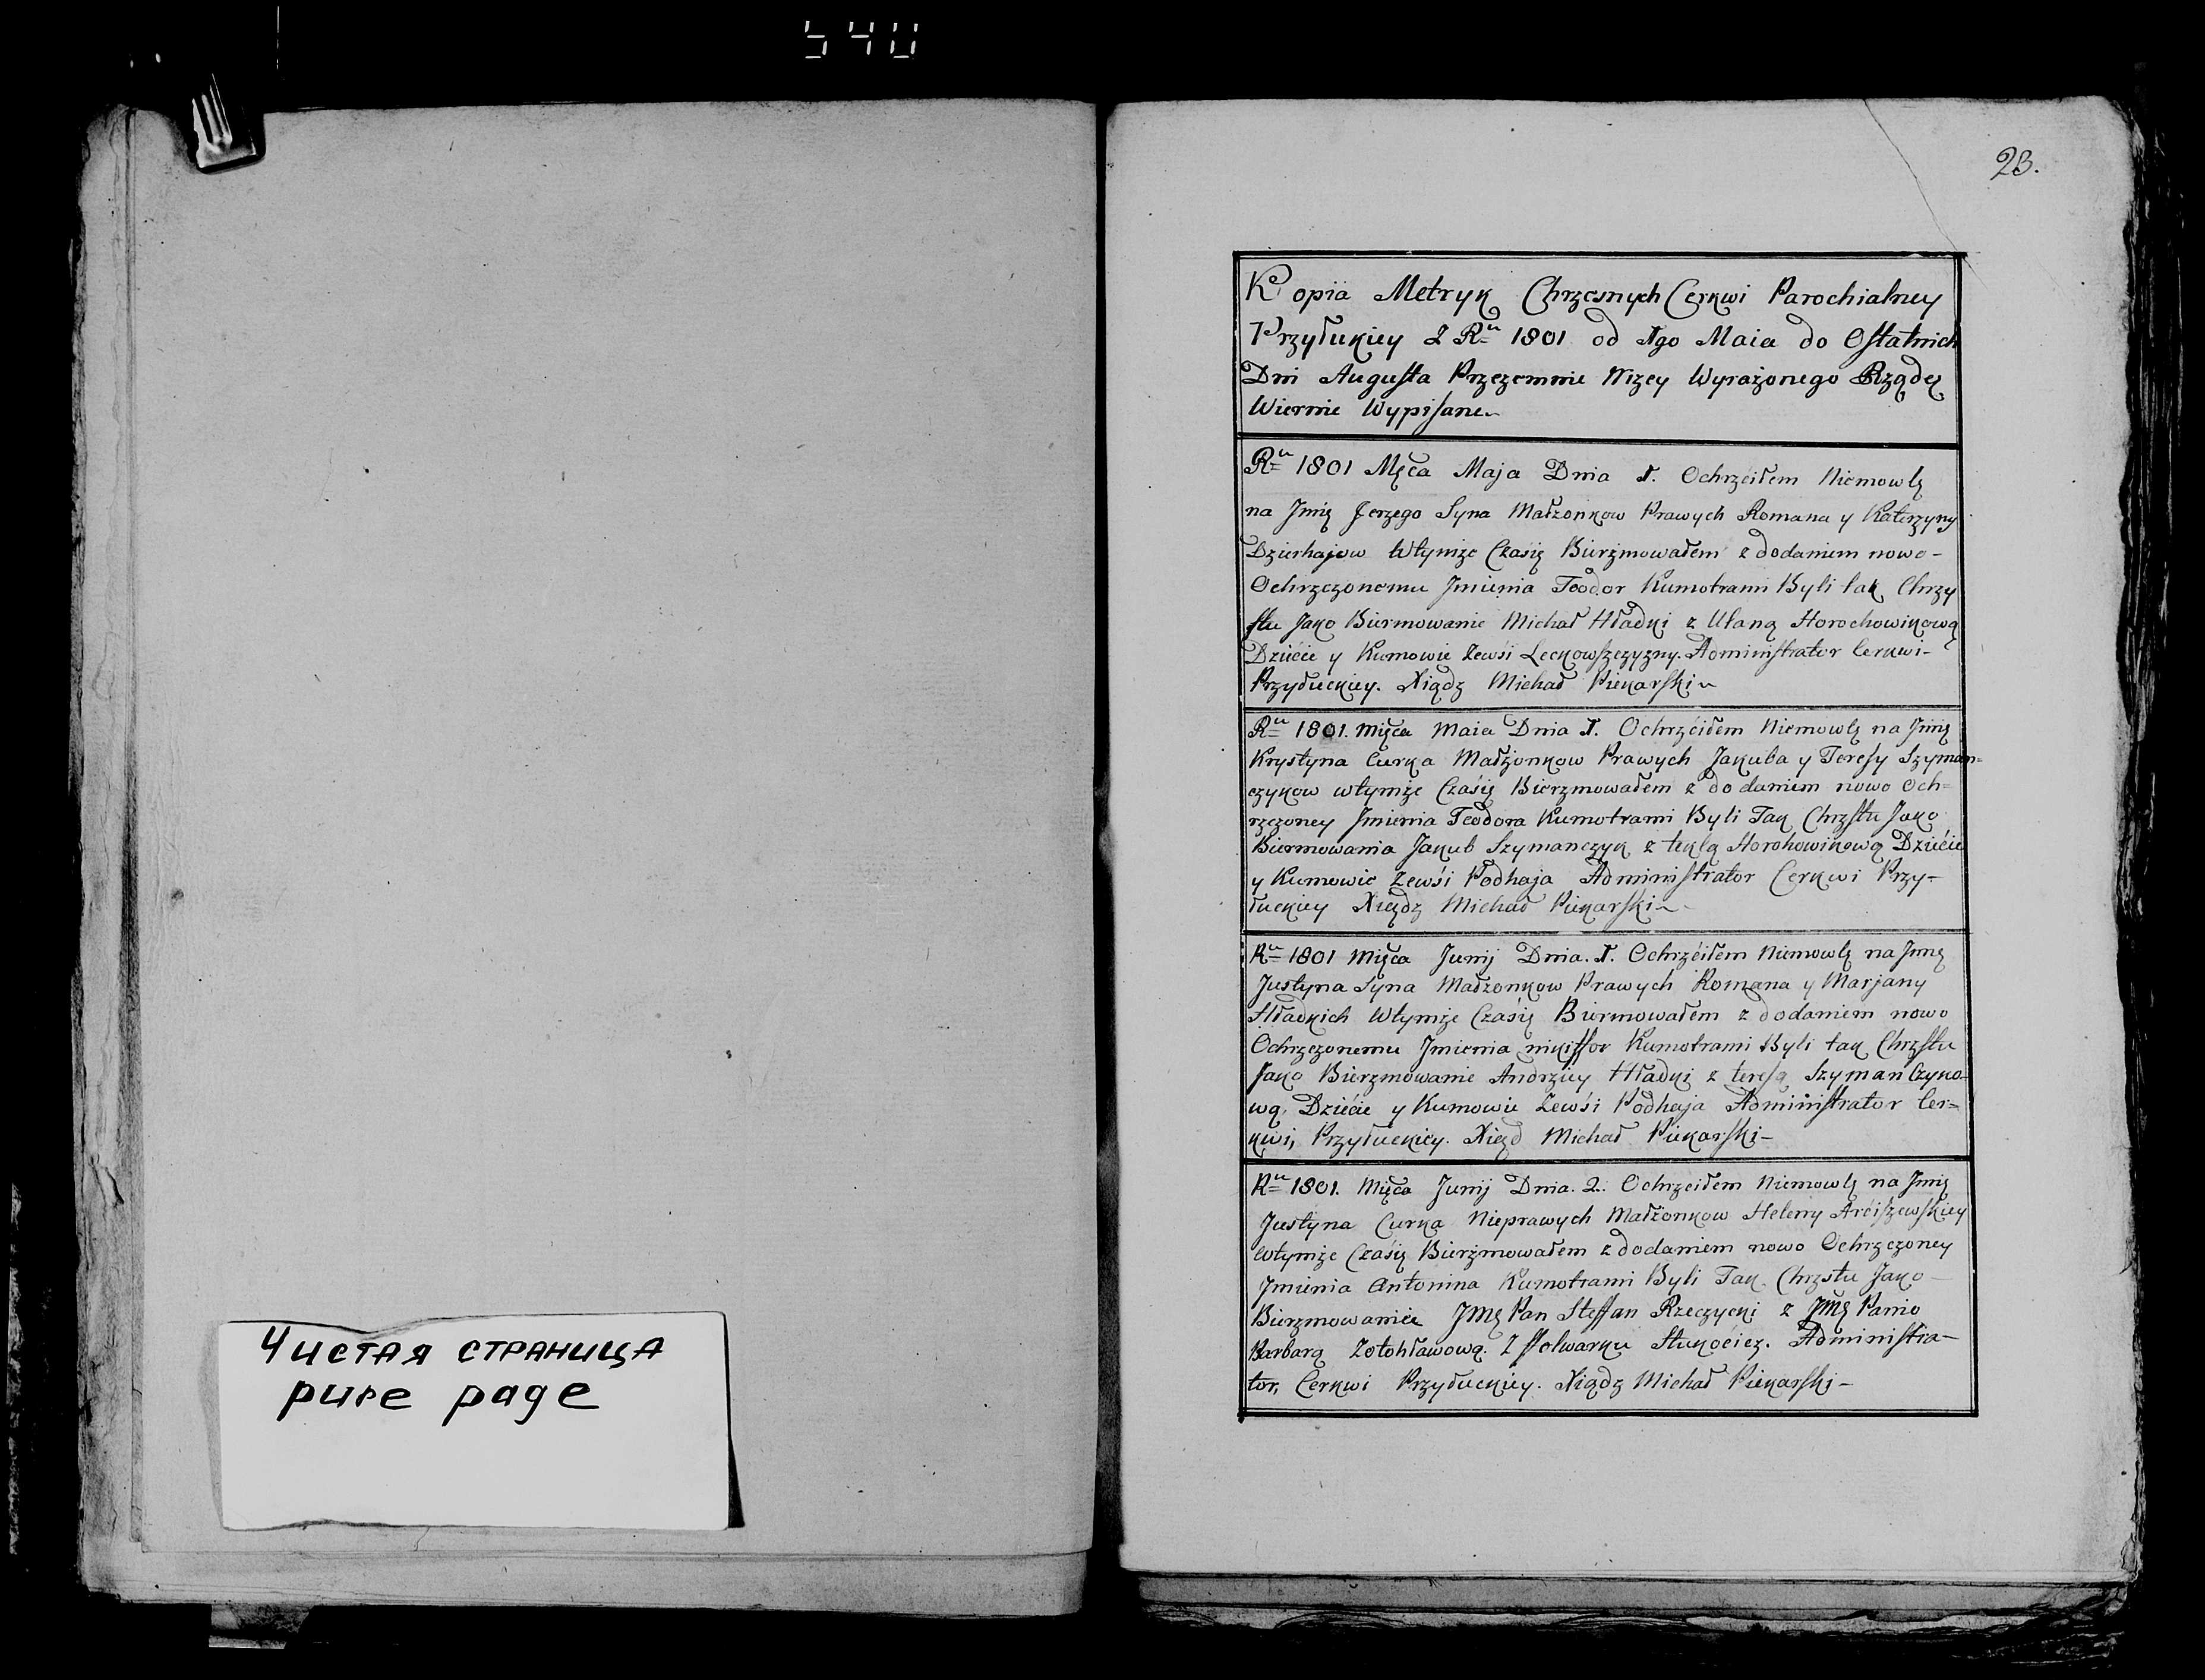 540
Чистая страница
pure page
23.
Kopia Metryk Chrzesnych Cerkwi Parochialney
Przyłukiey Z Rᵘ 1801 od 1go Maia do Ostatnich
Dni Augusta Przezemnie Nizey Wyrażonego Rządcę
Wiernie Wypisane
Rᵘ 1801 Męca Maja Dnia 1. Ochrzciłem Niemowlę
na Jmię Jerzego Syna Małżonkow Prawych Romana y Katerzyny
Dzierhajow Wtymże Czasię Bierżmowałem z dodaniem nowo-
Ochrzczonemu Jmienia Teodor Kumotrami Byli tak Chrzy
stu Jako Biermowanie Michał Hładki z Ulaną Horochowikową
Dziécie y Kumowie Zewsi Leckowszczyzny. Administrator Cerkwi-
Przyłuckiey. Xiądz Michał Piekarski
Rᵘ 1801. Mięca Maia Dnia 1. Ochrzćiłem Niemowlę na Jmię
Krystyna Curka Małżonkow Prawych Jakuba y Teresy Szyman=
czykow wtymże Czasię Bierzmowałem z dodaniem nowo Och=
rzczoney Jmienia Teodora Kumotrami Byli Tak Chrzstu Jako
Biermowania Jakub Szymanczyk z teklą Horohowikową Dziécie
y Kumowie Zewśi Podhaja Administrator Cerkwi Przy-
łuckiey Xiądz Michał Piekarski
Rᵘ 1801 Mięca Junij Dnia. 1. Ochrzćiłem Niemowlę na Jmię
Justyna Syna Małżonkow Prawych Romana y Marjany
Hładkich Wtymże Czasię Biermowałem z dodaniem nowo
Ochrzczonemu Jmienia nikiffor Kumotrami Byli tak Chrzstu
Jako Bierzmowanie Andrziey Hładki z teresą Szyman Czyko-
wą. Dziécie y Kumowie Zewśi Podhaja Administrator Cer=
kwi, Przyłuckiey. Xiązd Michał Piekarski-
Rᵘ 1801. Mięca Junij Dnia. 2. Ochrzciłem Niemowlę na Jmię
Justyna Curka Nieprawych Małżonkow Heleny Arciszewskiey
Wtymże Czasię Bierżmowałem z dodaniem nowo Ochrzczoney
Jmienia Antonina Kumotrami Byli Tak Chrzstu Jako-
Bierzmowanie JMę Pan Steffan Rzeczycki z JMę Panio
Barbarą Zołohławową. Z ffolwarku Administra-
tor, Cerkwi Przyłuckiey. Xiądz Michał Piekarski-